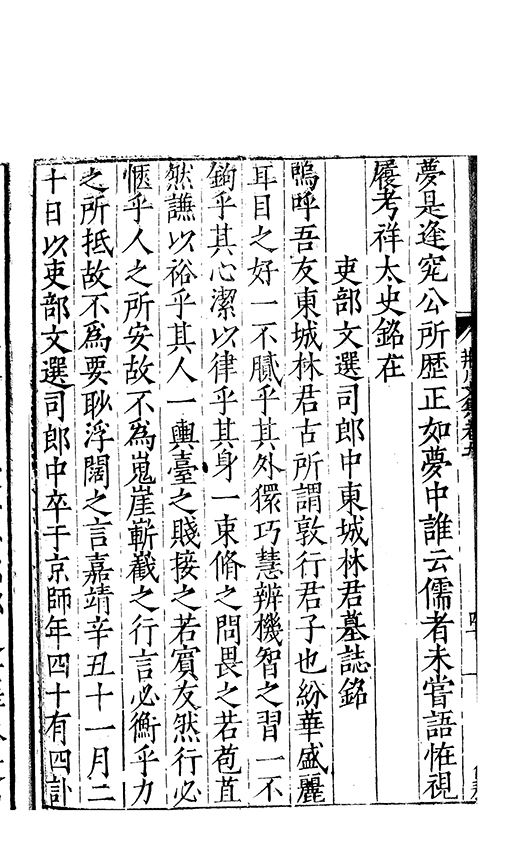 夢是逢究公所歴正如夢中誰云儒者未甞語恠視
履考祥太史銘在
吏部文選司郎中東城林君墓誌銘
嗚呼吾友東城林君古所謂敦行君子也紛華盛麗
耳目之好一不膩乎其外儇巧慧辨機智之習一不
鉤乎其心潔以律乎其身一束脩之問畏之若苞苴
然譙以裕乎其人一輿臺之賤接之若賓友然行必
愜乎人之所安故不為嵬崖嶄截之行言必衡乎力
之所抵故不為要眇浮闊之言嘉靖辛丑十一月二
十日以吏部文選司郎中卒于京師年四十有四訃